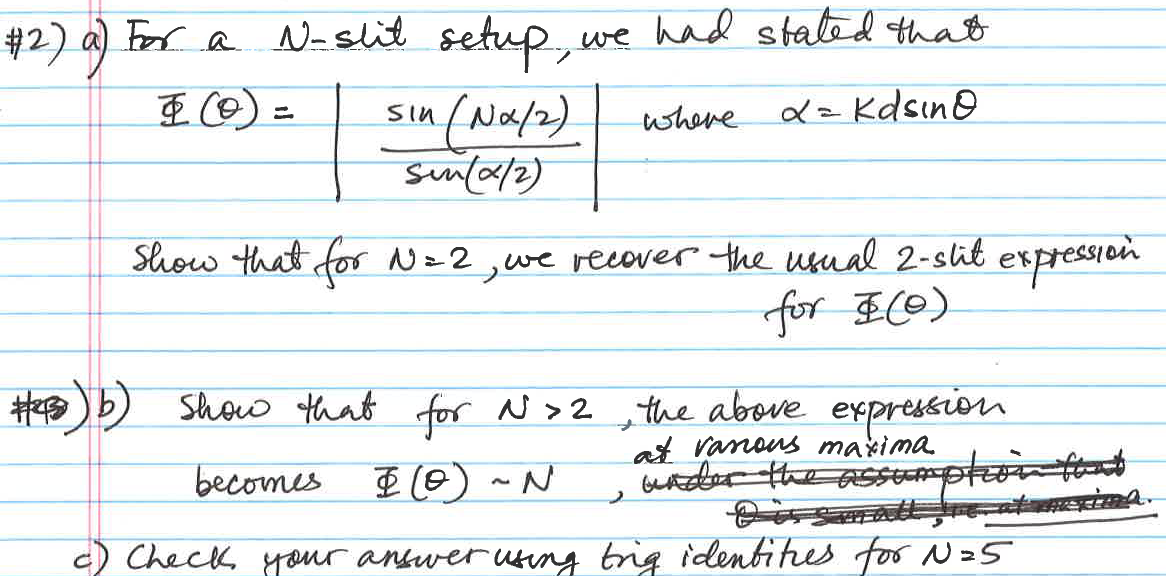 #2) a) For a N-slit setup, we had stated that
Φ(θ) = | sin(Nα/2) / sin(α/2) | where α = Kdsinθ
Show that for N=2, we recover the usual 2-slit expression
for Φ(θ)
b) Show that for N>2, the above expression
at various maxima
becomes Φ(θ) ~ N , under the assumption that
θ is small, i.e. at maxima.
c) Check your answer using trig identities for N=5